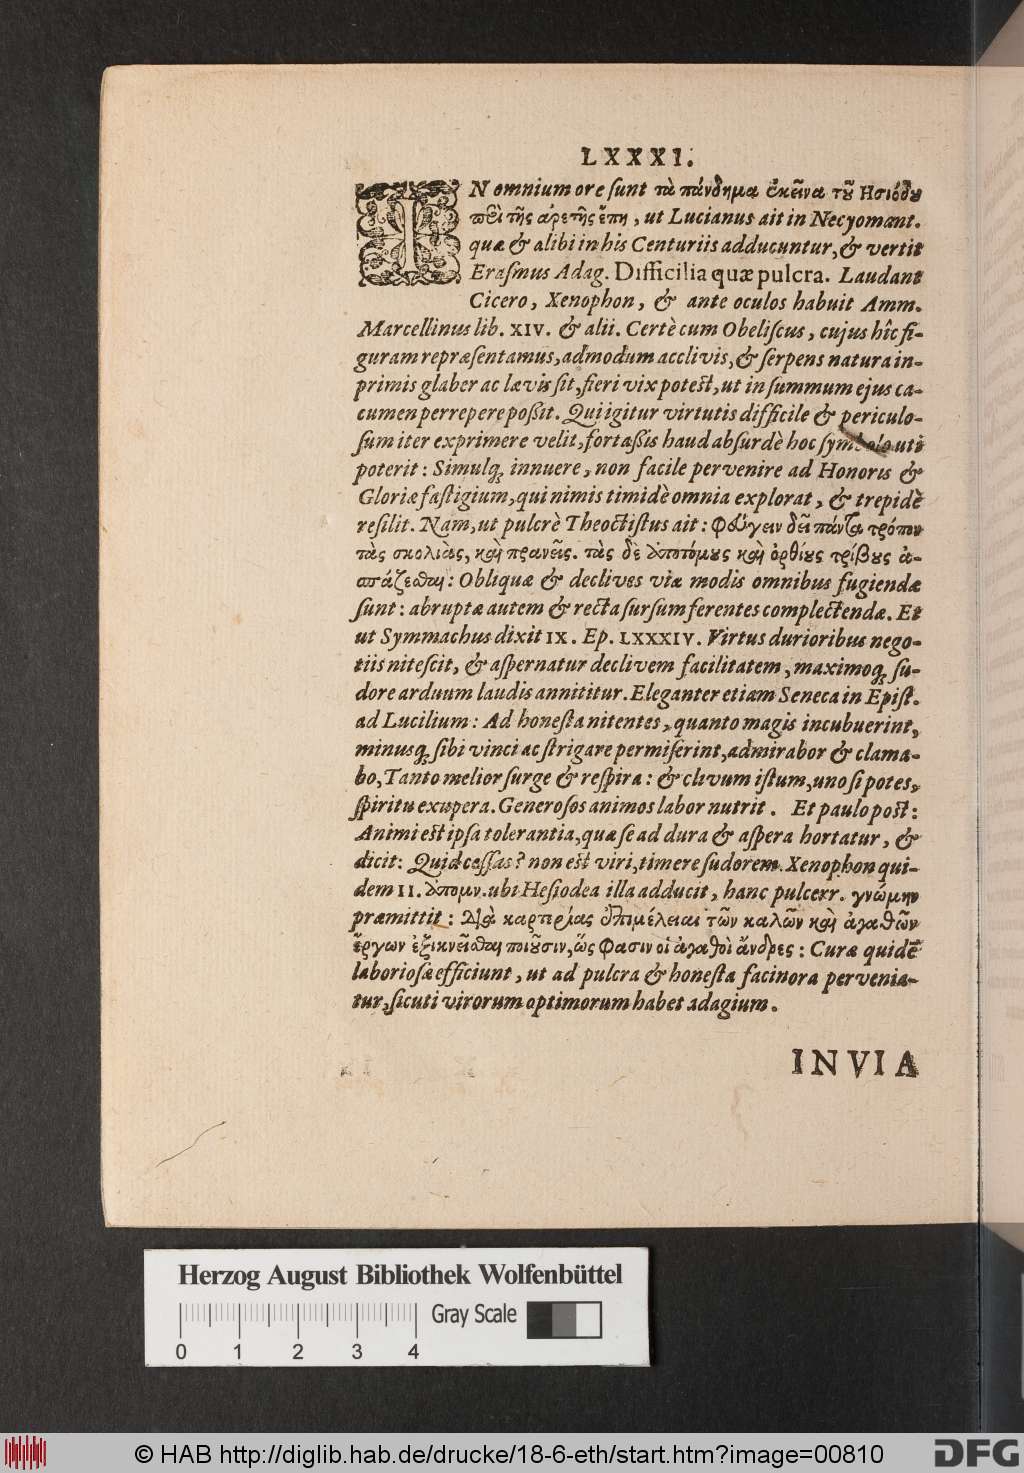 LXXXI.
IN omnium ore sunt τὰ πάνδημα ἐκεῖνα τοῦ Ησιόδου
περὶ τῆς ἀρετῆς ἔπη, ut Lucianus ait in Necyomant.
quæ & alibi in his Centuriis adducuntur, & vertit
Erasmus Adag. Difficilia quæ pulcra. Laudant
Cicero, Xenophon, & ante oculos habuit Amm.
Marcellinus lib. XIV. & alii. Certè cum Obeliscus, cujus hîc fi-
guram repræsentamus, admodum acclivis, & serpens natura in-
primis glaber ac lævis sit, fieri vix potest, ut in summum ejus ca-
cumen perrepere possit. Qui igitur virtutis difficile & periculo-
sum iter exprimere velit, fortassis haud absurdè hoc symbolo uti
poterit: Simulq; innuere, non facile pervenire ad Honoris &
Gloriæ fastigium, qui nimis timidè omnia explorat, & trepidè
resilit. Nam, ut pulcrè Theoctistus ait: φεύγειν δεῖ πάντα τρόπον
τὰς σκολιὰς, καὶ πρανεῖς. τὰς δὲ ἀποτόμους καὶ ὀρθίους τρίβους ἀ-
σπάζεσθαι: Obliquæ & declives viæ modis omnibus fugiendæ
sunt: abruptæ autem & recta sursum ferentes complectendæ. Et
ut Symmachus dixit IX. Ep. LXXXIV. Virtus durioribus nego-
tiis nitescit, & aspernatur declivem facilitatem, maximoq; su-
dore arduum laudis annititur. Eleganter etiam Seneca in Epist.
ad Lucilium: Ad honesta nitentes, quanto magis incubuerint,
minusq; sibi vinci ac strigare permiserint, admirabor & clama-
bo, Tanto melior surge & respira: & clivum istum, uno si potes,
spiritu exupera. Generosos animos labor nutrit. Et paulo post:
Animi est ipsa tolerantia, quæ se ad dura & aspera hortatur, &
dicit: Quid cessas? non est viri, timere sudorem. Xenophon qui-
dem II. ἀπομν. ubi Hesiodea illa adducit, hanc pulcerr. γνώμην
præmittit: Διὰ καρτερίας ἐπιμέλειαι τῶν καλῶν καὶ ἀγαθῶν
ἔργων ἐξικνεῖσθαι ποιοῦσιν, ὥς φασιν οἱ ἀγαθοὶ ἄνδρες: Curæ quidē
laboriosæ efficiunt, ut ad pulcra & honesta facinora pervenia-
tur, sicuti virorum optimorum habet adagium.
INVIA
Herzog August Bibliothek Wolfenbüttel
Gray Scale
0 1 2 3 4
© HAB http://diglib.hab.de/drucke/18-6-eth/start.htm?image=00810
DFG